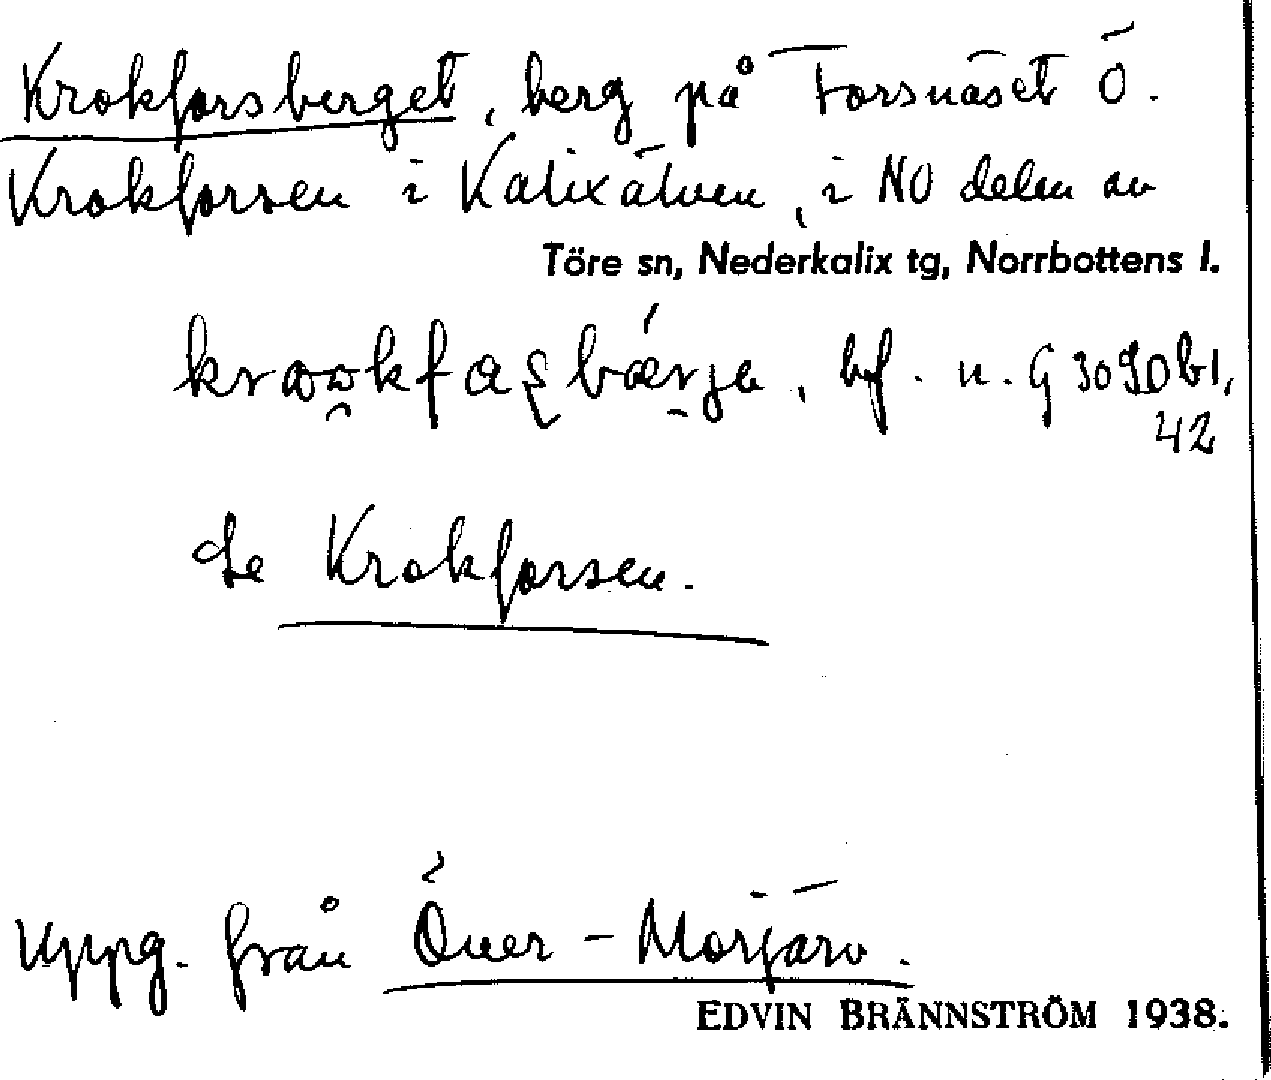 Krokforsberget, berg på Forsnäset Ö.
Krokforsen i Kalixälven, i NO delen av
Töre sn, Nederkalix tg, Norrbottens l.
bf. n. G 3090 bl,
42
Se Krokforsen.
Uppg. från Över-Morjärv.
EDVIN BRÄNNSTRÖM 1938.